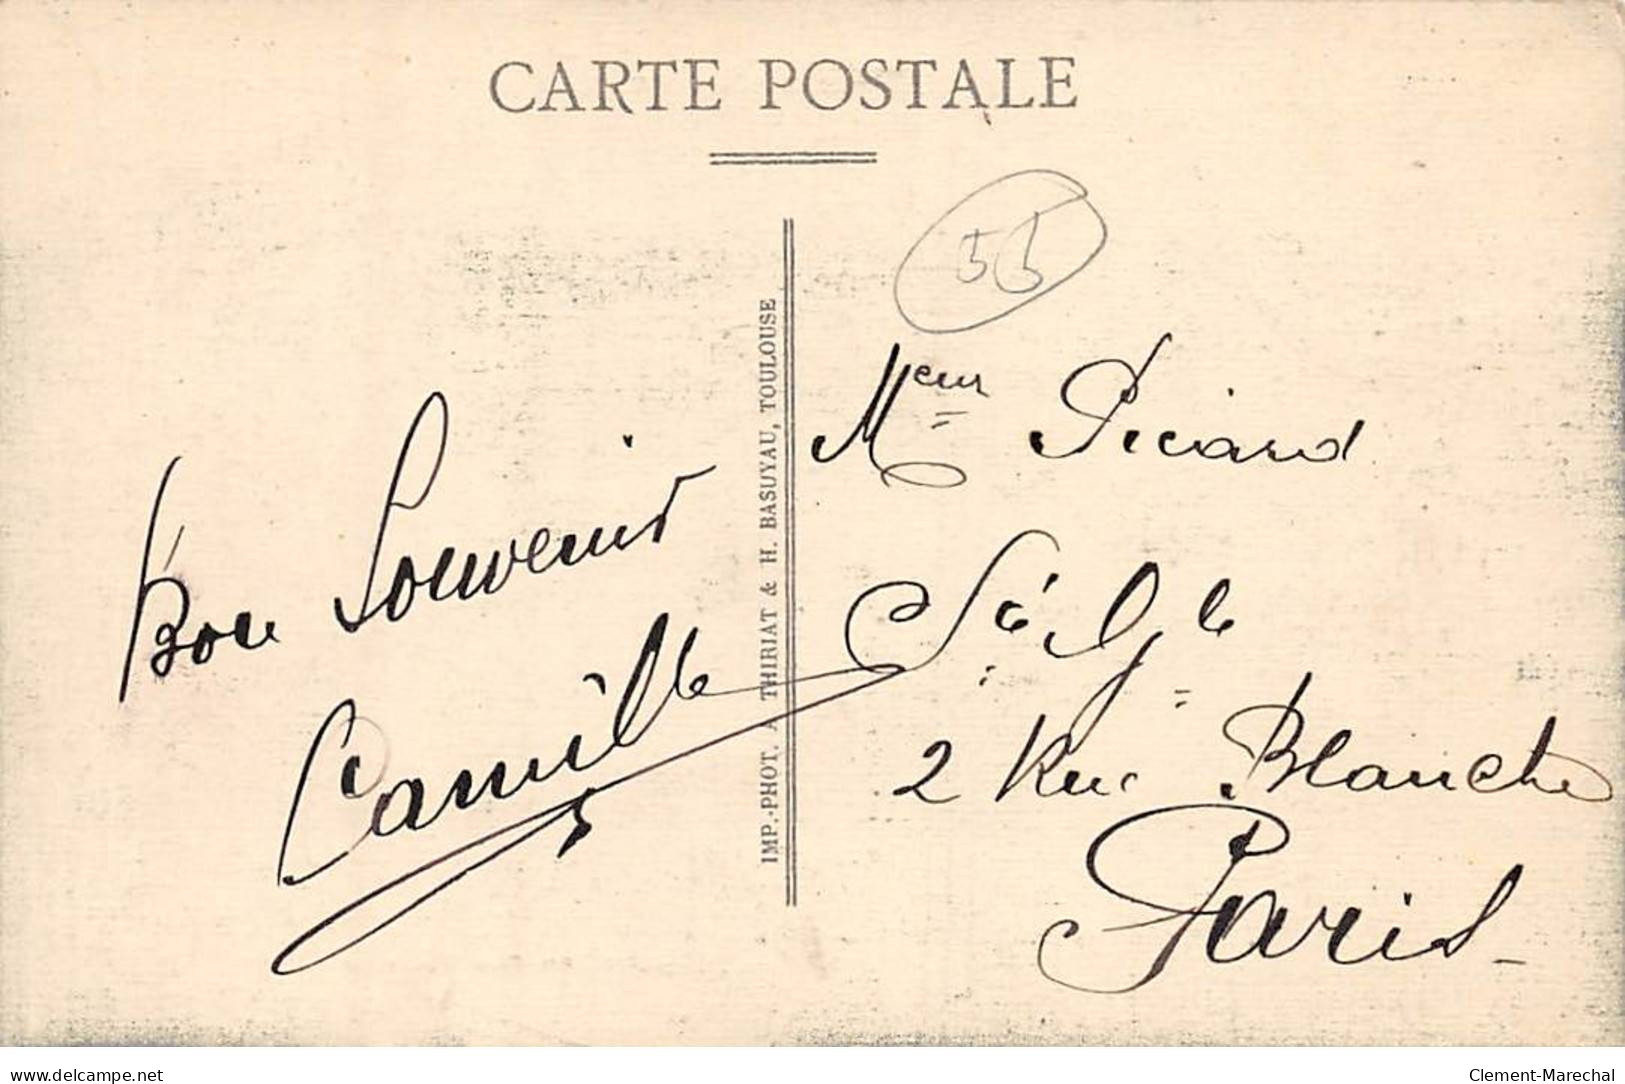 CARTE POSTALE
55
Bon Souvenir
Camille
IMP.-PHOT. A. THIRIAT & H. BASUYAU, TOULOUSE
Meur Picard
Sté Gle
2 Rue Blanche
Paris
www.delcampe.net
Clement-Marechal